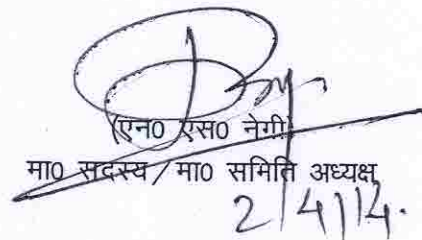 (एन0 एस0 नेगी)
मा0 सदस्य / मा0 समिति अध्यक्ष
2/4/14.